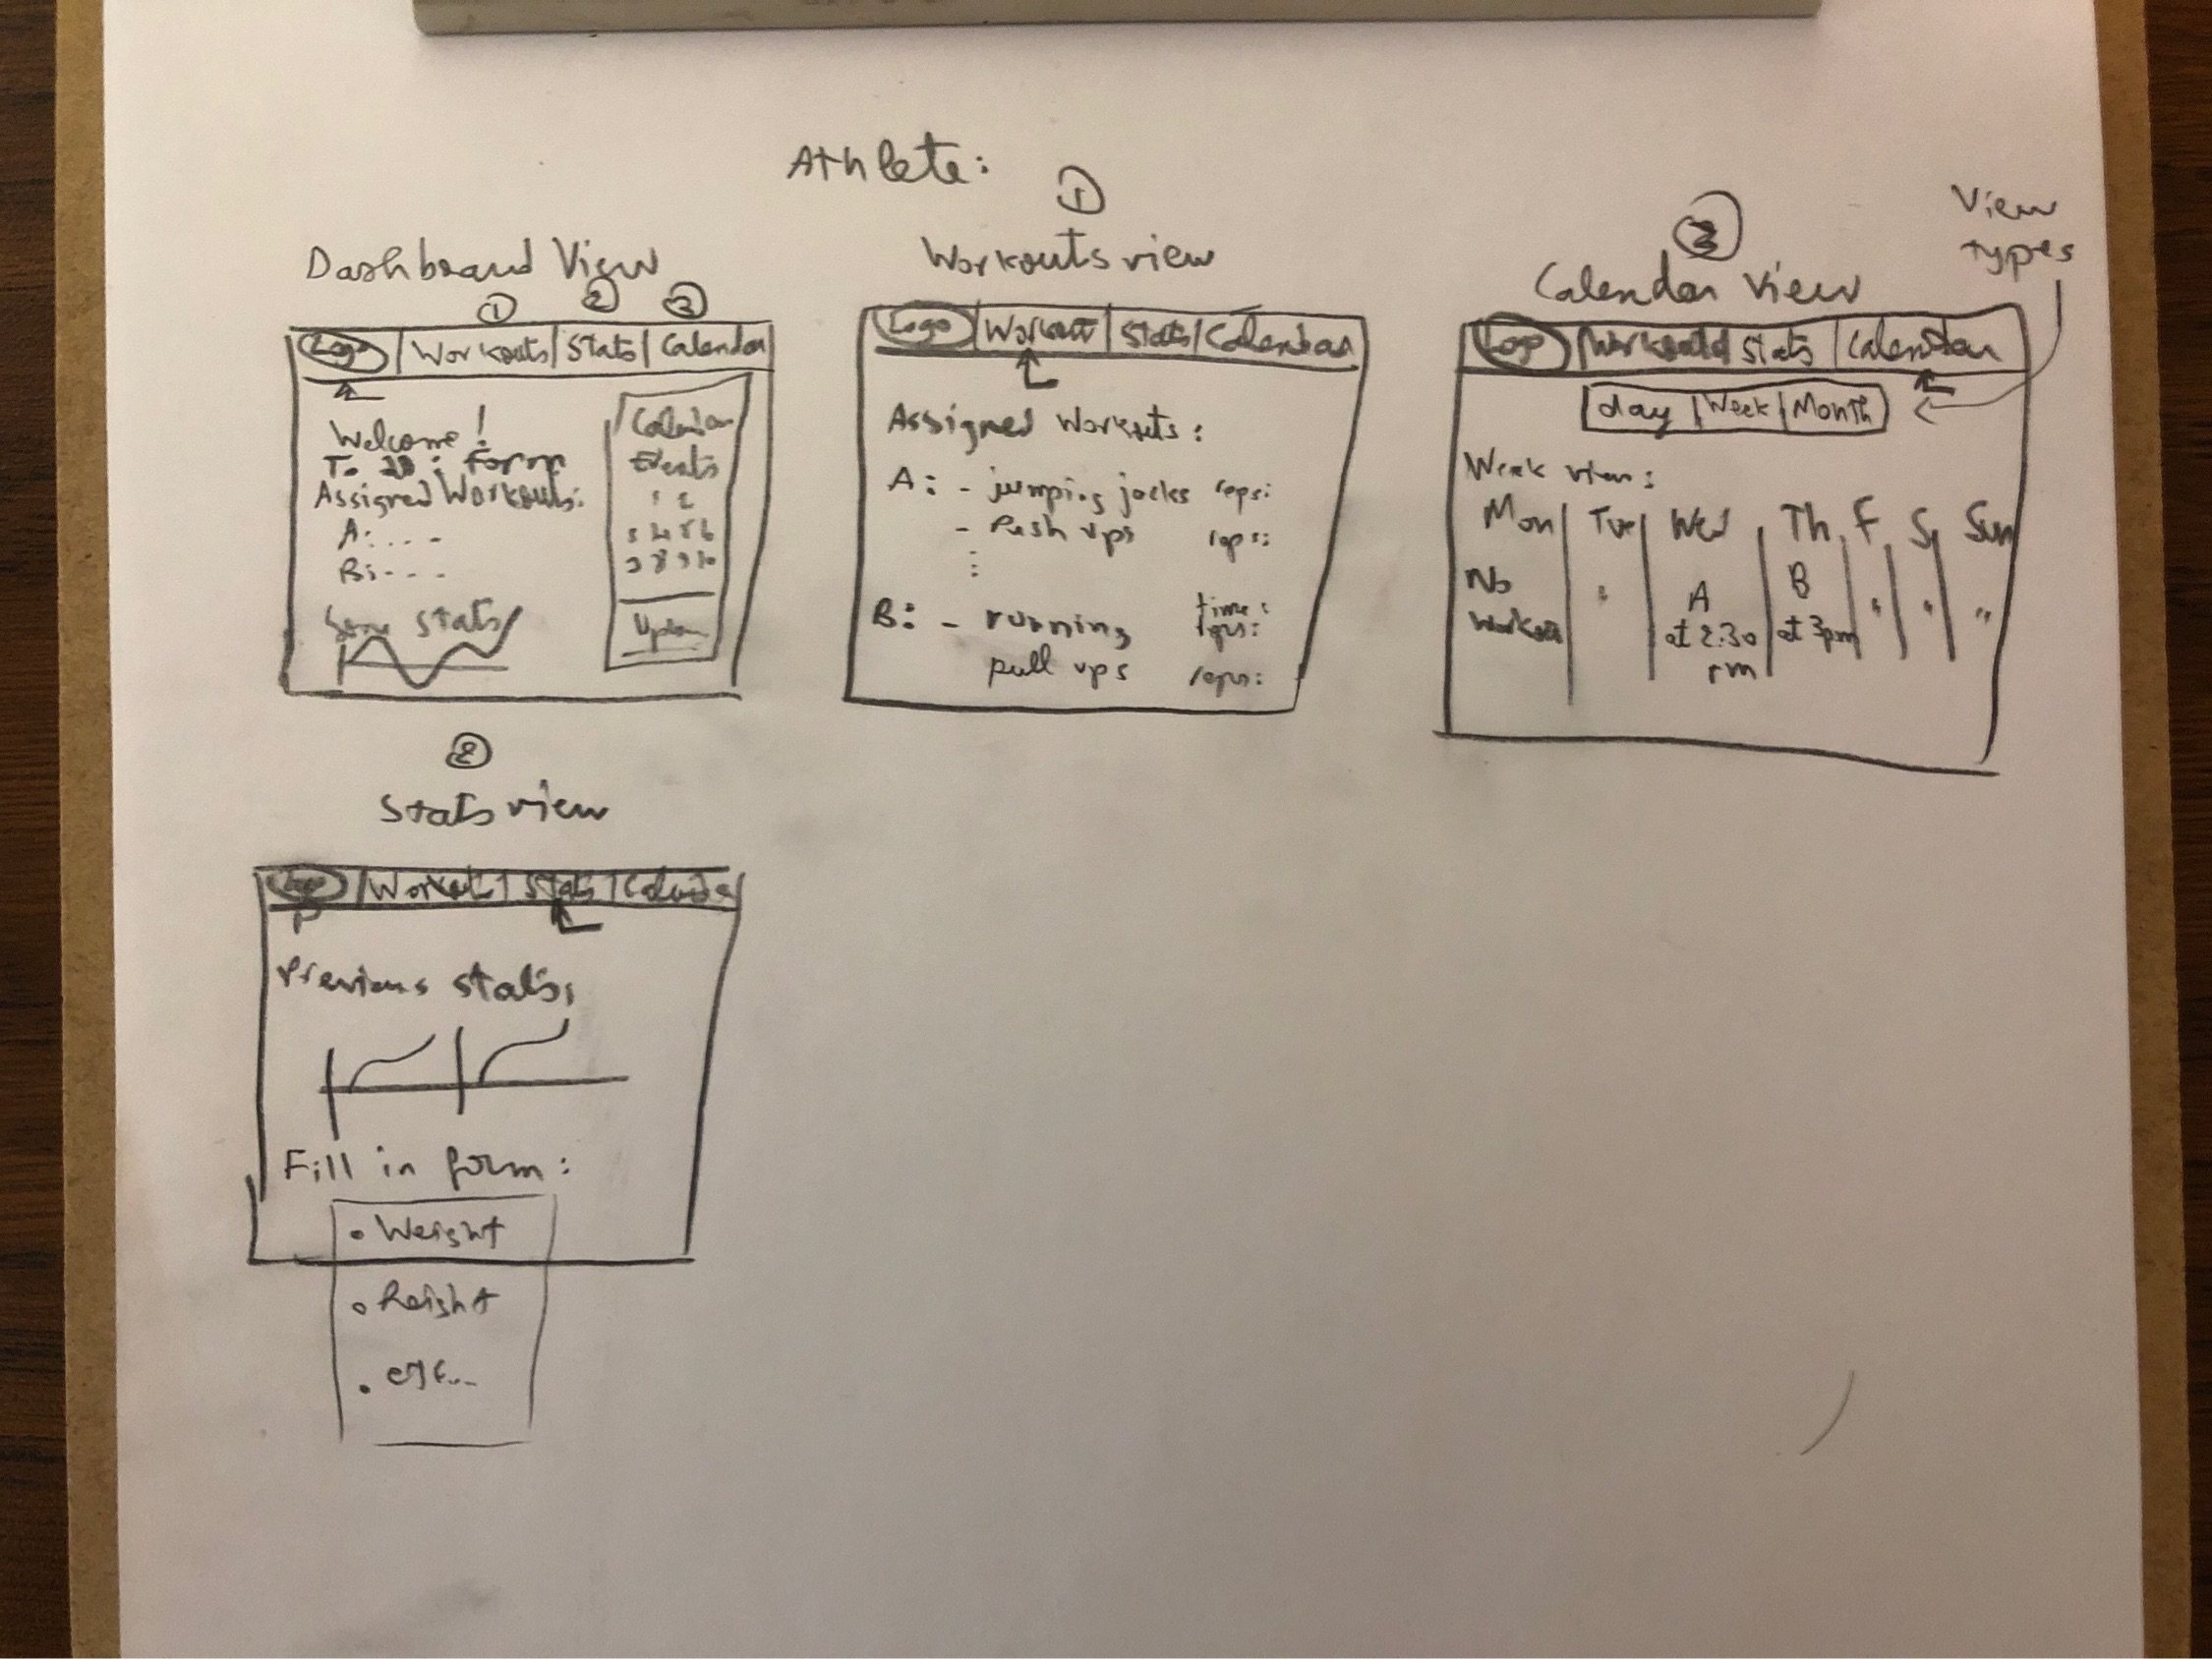 Athlete:
Dashboard View
① ② ③
Logo Workouts Stats Calendar
Welcome!
To do: form
Assigned Workouts:
A: . . . -
B: - - -
Some stats
Calendar
Events
1 2
3 4 5 6
7 8 9 10
①
Workouts view
Logo Workout Stats Calendar
Assigned Workouts:
A: - jumping jacks reps:
- Push ups reps:
B: - running time:
reps:
pull ups reps:
③
Calendar View
View
types
Logo Workouts Stats Calendar
day Week Month
Week view:
Mon Tue Wed Th F S Sun
No
Workout
"
A
at 2:30
pm
B
at 3pm
" " "
②
Stats view
Logo Workout Stats Calendar
Previous stats:
Fill in form:
• Weight
• height
• etc...